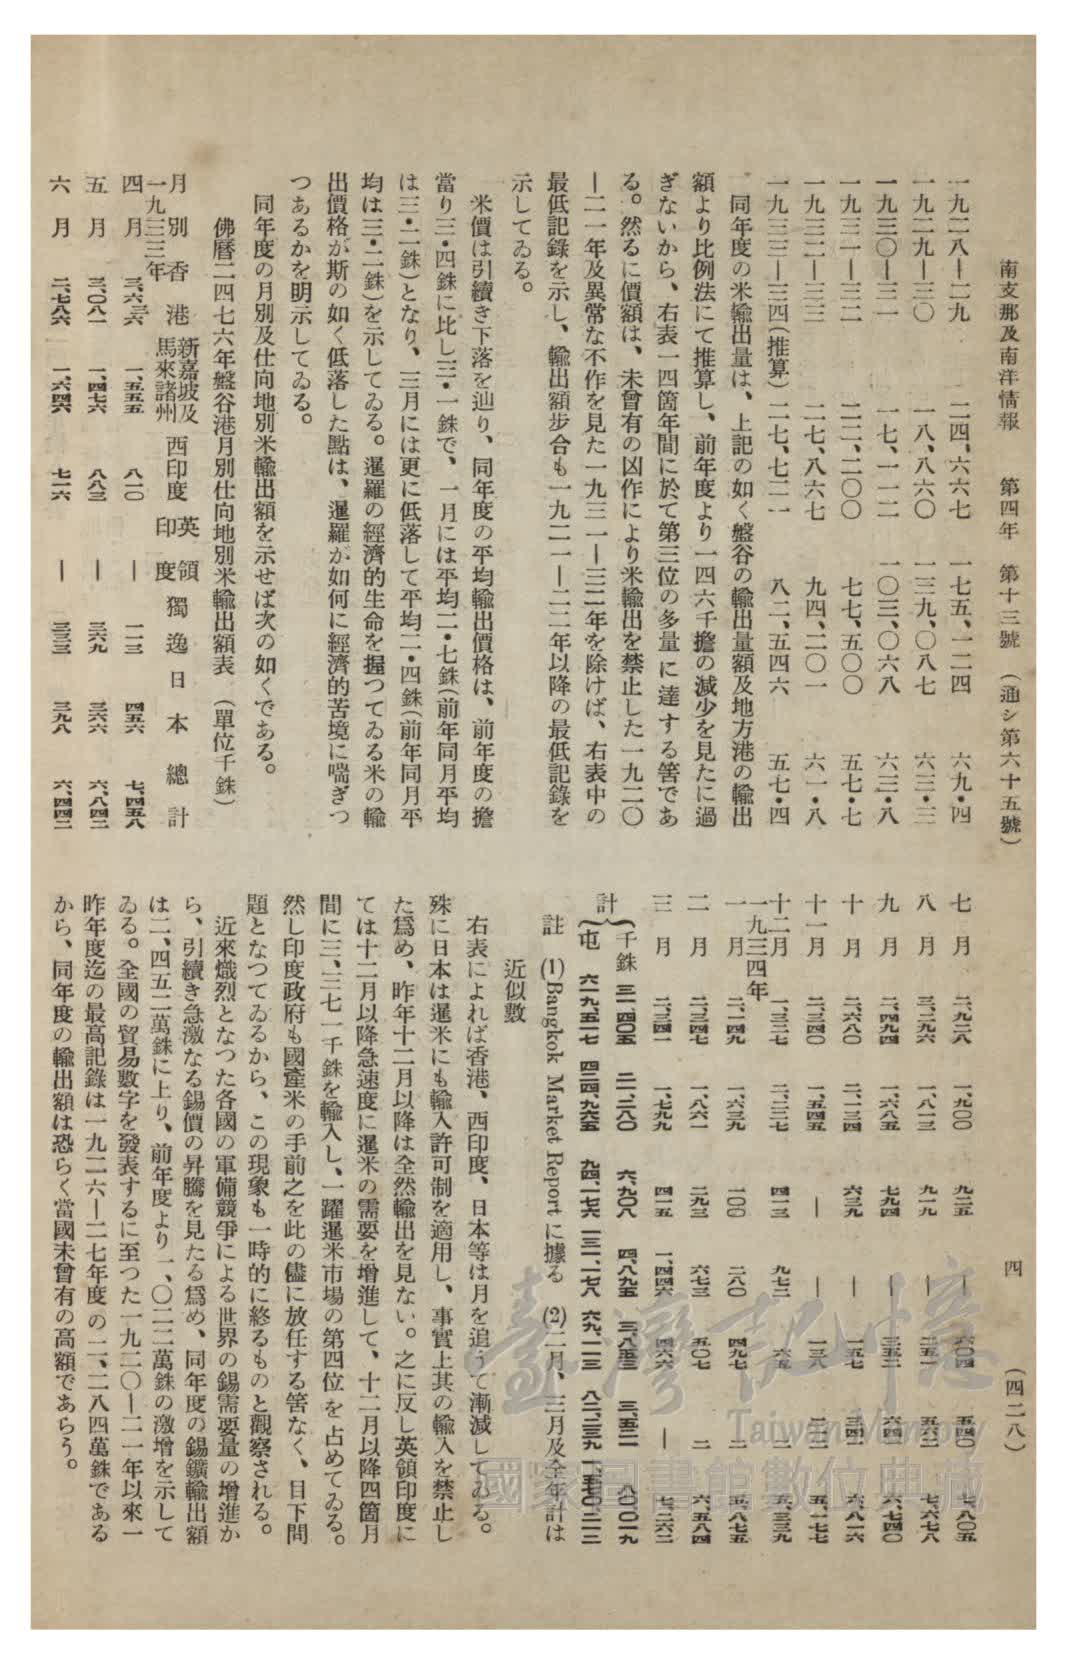 南支那及南洋情報　第四年　第十三號　（通シ第六十五號）
四　（四二八）
一九二八—二九　二四、六六七　一七五、一二四　六九・四
一九二九—三〇　一八、八六〇　一三九、〇八七　六三・三
一九三〇—三一　一七、一一二　一〇三、〇六八　六三・八
一九三一—三二　二二、二〇〇　七七、五〇〇　五七・七
一九三二—三三　二七、八六七　九四、二〇一　六一・八
一九三三—三四（推算）二七、七二一　八二、五四六　五七・四
同年度の米輸出量は、上記の如く盤谷の輸出量額及地方港の輸出
額より比例法にて推算し、前年度より一四六千擔の減少を見たに過
ぎないから、右表一四箇年間に於て第三位の多量に達する筈であ
る。然るに價額は、未曾有の凶作により米輸出を禁止した一九二〇
—二一年及異常な不作を見た一九三一—三二年を除けば、右表中の
最低記錄を示し、輸出額步合も一九二一—二二年以降の最低記錄を
示してゐる。
米價は引續き下落を辿り、同年度の平均輸出價格は、前年度の擔
當り三・四銖に比し三・一銖で、一月には平均二・七銖（前年同月平均
は三・二銖）となり、三月には更に低落して平均二・四銖（前年同月平
均は三・二銖）を示してゐる。暹羅の經濟的生命を握つてゐる米の輸
出價格が斯の如く低落した點は、暹羅が如何に經濟的苦境に喘ぎつ
つあるかを明示してゐる。
同年度の月別及仕向地別米輸出額を示せば次の如くである。
佛曆二四七六年盤谷港月別仕向地別米輸出額表　（單位千銖）
月別　香港　新嘉坡及馬來諸州　西印度　英領印度　獨逸　日本　總計
一九三三年
四月　三、六三六　一、五五五　八一〇　—　一一三　四五六　七、四五八
五月　三、〇八一　一、四七六　八八三　—　三六九　三六六　六、八四二
六月　二、七八六　一、六四六　七一六　—　三三三　三九八　六、四四二
七月　二、九二八　一、九〇〇　九二五　—　六〇四　五四〇　七、八〇五
八月　三、二九六　一、八一三　九一九　—　二五一　五六二　七、六七八
九月　二、四九四　一、六八五　七九四　—　三五二　六四四　六、七四〇
十月　二、六八〇　二、一三四　六三九　—　一五七　三四一　六、八一六
十一月　二、三四〇　一、五四五　—　—　一三八　二一二　五、一七七
十二月　一、三二七　二、二三七　四一三　九七二　六五　二　五、三三九
一九三四年
一月　二、一四九　一、六三九　一〇〇　二八〇　四九七　二　五、八七五
二月　二、三四七　一、八六一　二九三　六七三　五〇七　二　六、五八四
三月　二、三四一　一、七九九　四一五　一、四四六　四六六　—　七、二六二
計｛千銖　三一、四〇五　二一、二八〇　六、九〇八　四、八九五　三、八五三　三、五二一　八〇、〇一九
屯　六一九、五一七　四二四、九六五　九四、一七六　一三一、一七八　六九、一一三　八二、三三九　一、五七〇、二一二
註　(1) Bangkok Market Report に據る　(2)二月、三月及全年計は
近似數
右表によれば香港、西印度、日本等は月を追うて漸減してゐる。
殊に日本は暹米にも輸入許可制を適用し、事實上其の輸入を禁止し
た爲め、昨年十二月以降は全然輸出を見ない。之に反し英領印度に
ては十二月以降急速度に暹米の需要を增進して、十二月以降四箇月
間に三、三七一千銖を輸入し、一躍暹米市場の第四位を占めてゐる。
然し印度政府も國產米の手前之を此の儘に放任する筈なく、目下問
題となつてゐるから、この現象も一時的に終るものと觀察される。
近來熾烈となつた各國の軍備競爭による世界の錫需要量の增進か
ら、引續き急激なる錫價の昇騰を見たる爲め、同年度の錫鑛輸出額
は二、四五二萬銖に上り、前年度より一、〇二二萬銖の激增を示して
ゐる。全國の貿易數字を發表するに至つた一九二〇—二一年以來一
昨年度迄の最高記錄は一九二六—二七年度の二、二八四萬銖である
から、同年度の輸出額は恐らく當國未曾有の高額であらう。
臺灣記憶
Taiwan Memory
國家圖書館數位典藏